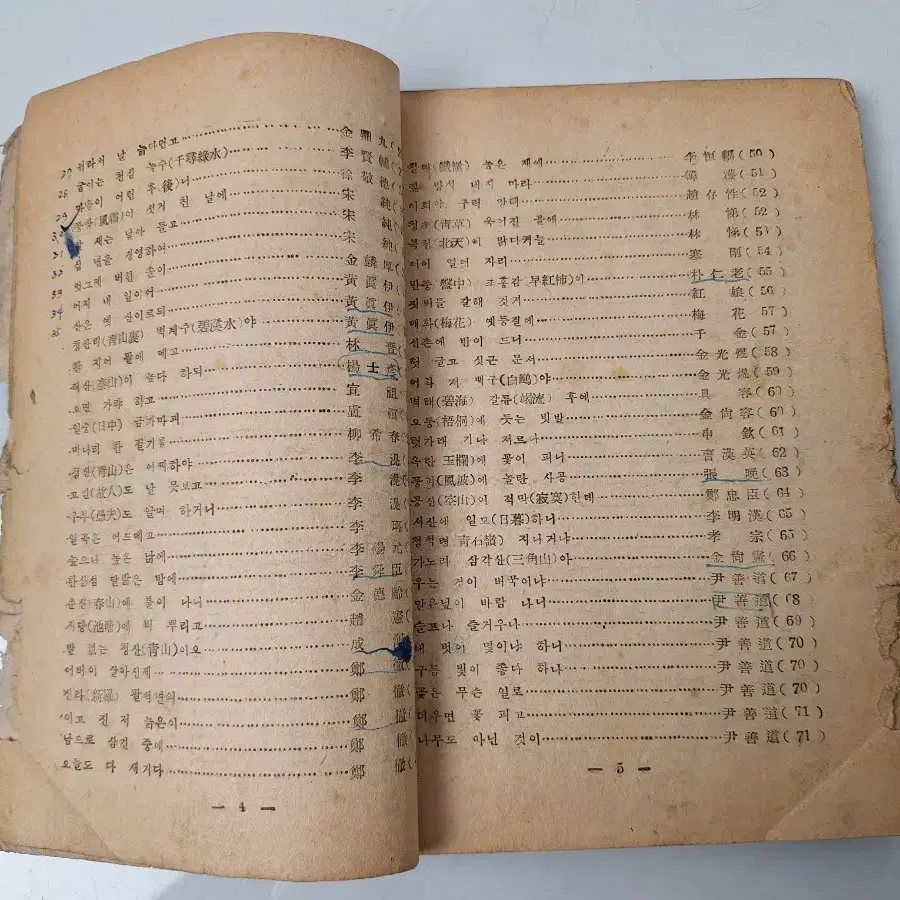 27 뉘라서 날 늙다던고 金鼎九(
28 굽어는 천심 녹수(千尋綠水) 李賢輔(
29 마음이 어린 후(後)니 徐敬德(
풍상(風霜)이 섯거 친 날에 宋 純(
31 새는 남아 듣고 宋 純(
32 십 년을 경영하여 宋 純(
33 엊그제 버힌 손이 金麟厚(
34 어져 내 일이여 黃眞伊(
35 산은 옛 산이로되 黃眞伊(
청산리(靑山裏) 벽계수(碧溪水)야 黃眞伊(
활 지어 팔에 메고 林 晋(
태산(泰山)이 높다 하되 楊士彦(
오면 가랴 하고 宣 祖(
일중(日中) 금가마괴 盧 禛(
미나리 한 펄기를 柳希春(
청산(靑山)은 어찌하야 李 滉(
고인(故人)도 날 못보고 李 滉(
우부(愚夫)도 알며 하거니 李 滉(
일곡은 어드메고 李 珥(
높으나 높은 남에 李陽元(
한산섬 달밝은 밤에 李舜臣(
춘산(春山)에 불이 나니 金德齡(
지당(池塘)에 비 뿌리고 趙 憲(
말 없는 청산(靑山)이오 成
어버이 살아신제 鄭 澈(
신라(新羅) 팔백년의 鄭 澈(
이고 진 저 늙은이 鄭 澈(
남으로 삼긴 중에 鄭 澈(
오늘도 다 새거다 鄭 澈(
— 4 —
철령(鐵嶺) 높은 재에 李恒福(50)
짚 방석 내지 마라 韓 濩(51)
구럭 망태 趙存性(52)
청초(靑草) 욱어진 골에 林 悌(52)
북천(北天)이 맑다커늘 林 悌(53)
어이 얼어 자리 寒 雨(54)
반중(盤中) 조홍감(早紅柿)이 朴仁老(55)
잘해 것거 紅 娘(56)
매화(梅花) 옛등걸에 梅 花(57)
산촌에 밤이 드니 千 金(57)
헛 글고 싯근 문서 金光煜(58)
어라 저 백구(白鷗)야 金光煜(59)
벽해(碧海) 갈류(竭流) 후에 具 容(60)
오동(梧桐)에 듯는 빗발 金尙容(60)
혓가래 기나 저르나 申 欽(61)
옥란(玉欄)에 꽃이 피니 曺漢英(62)
풍파(風波)에 놀란 사공 張 晩(63)
공산(空山)이 적막(寂寞)한데 鄭忠臣(64)
서산에 일모(日暮)하니 李明漢(65)
청석령(靑石嶺) 지나거냐 孝 宗(65)
가노라 삼각산(三角山)아 金尙憲(66)
우는 것이 버꾹이냐 尹善道(67)
만은닢이 바람 나니 尹善道(68)
슬프나 즐거우나 尹善道(69)
내 벗이 몇이냐 하니 尹善道(70)
구름 빛이 좋다 하나 尹善道(70)
꽃은 무슨 일로 尹善道(70)
더우면 꽃 피고 尹善道(71)
나무도 아닌 것이 尹善道(71)
— 5 —